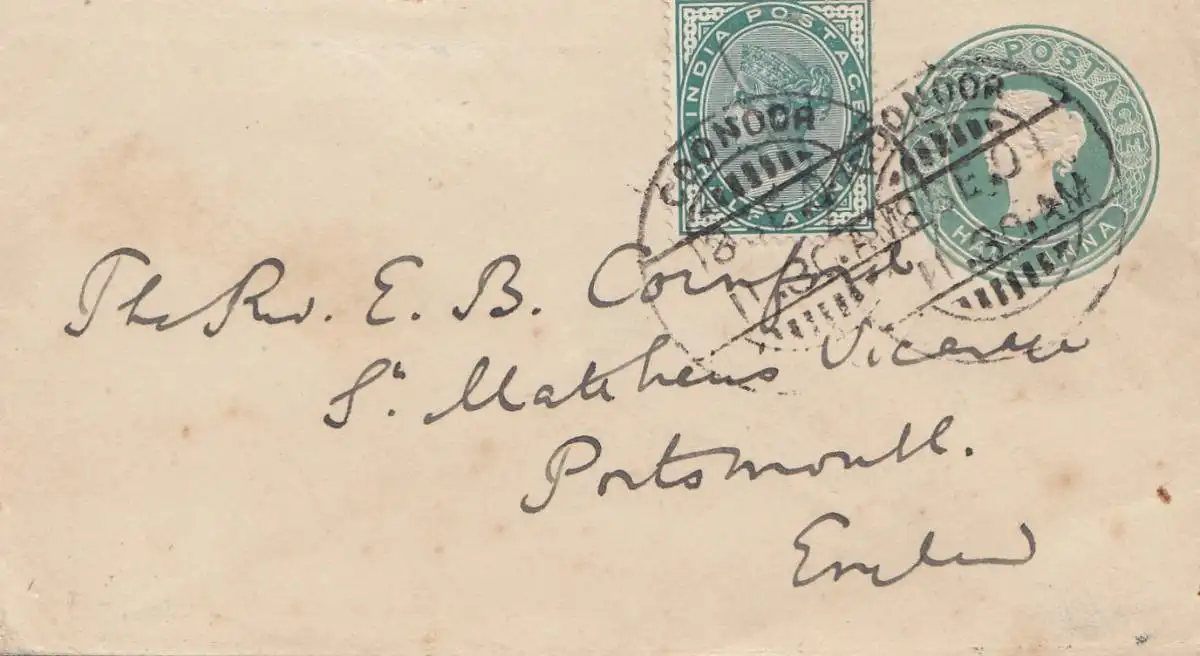 INDIA POSTAGE
HALF ANNA
POSTAGE
COONOOR
COONOOR
18 SE 01
11.30.AM
11.30.AM
The Rev. E. B. Cornford,
St. Matthews Vicarage
Portsmouth.
England